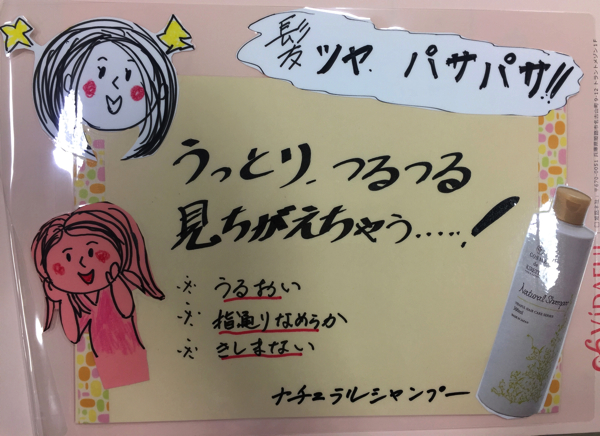 髪ツヤ パサパサ!!
うっとり、つるつる
見ちがえちゃう.....!
※ うるおい
※ 指通りなめらか
※ きしまない
ナチュラルシャンプー
Natural Shampoo